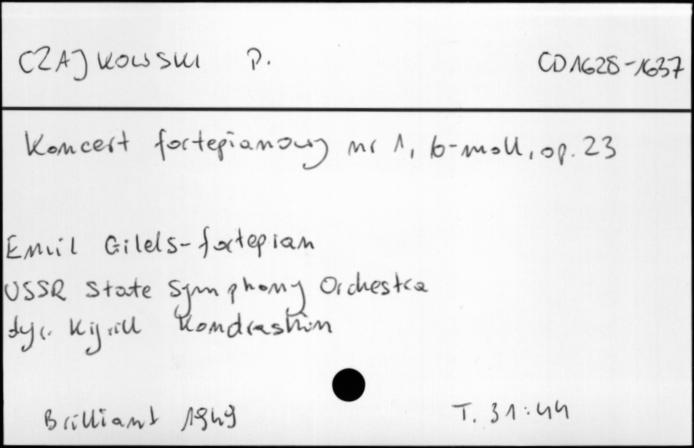 CZAJKOWSKI P. CD1628-1637
Koncert fortepianowy nr 1, b-moll, op. 23
Emil Gilels-fortepian
USSR State Symphony Orchestra
dyr. Kiyrill Kondrashin
Brilliant 1949 T. 31:44